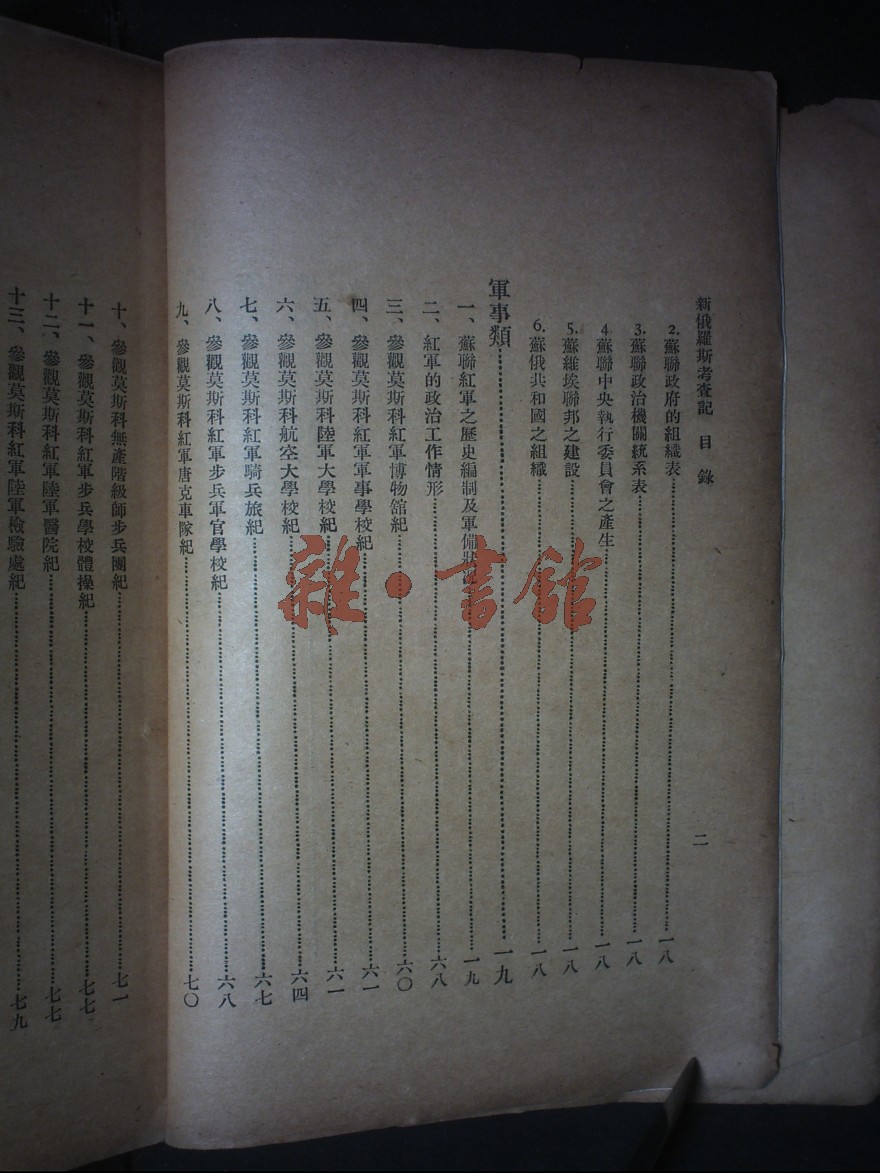 新俄羅斯考查記　目　錄　二
2. 蘇聯政府的組織表……一八
3. 蘇聯政治機關統系表……一八
4 蘇聯中央執行委員會之產生……一八
5. 蘇維埃聯邦之建設……一八
6. 蘇俄共和國之組織……一八
軍事類……一九
一、蘇聯紅軍之歷史編制及軍備狀……一九
二、紅軍的政治工作情形……六八
三、參觀莫斯科紅軍博物館紀……六〇
四、參觀莫斯科紅軍軍事學校紀……六一
五、參觀莫斯科陸軍大學校紀……六一
六、參觀莫斯科航空大學校紀……六四
七、參觀莫斯科紅軍騎兵旅紀……六七
八、參觀莫斯科紅軍步兵軍官學校紀……六八
九、參觀莫斯科紅軍唐克車隊紀……七〇
十、參觀莫斯科無產階級師步兵團紀……七一
十一、參觀莫斯科紅軍步兵學校體操紀……七七
十二、參觀莫斯科紅軍陸軍醫院紀……七七
十三、參觀莫斯科紅軍陸軍檢驗處紀……七九
雜·書館